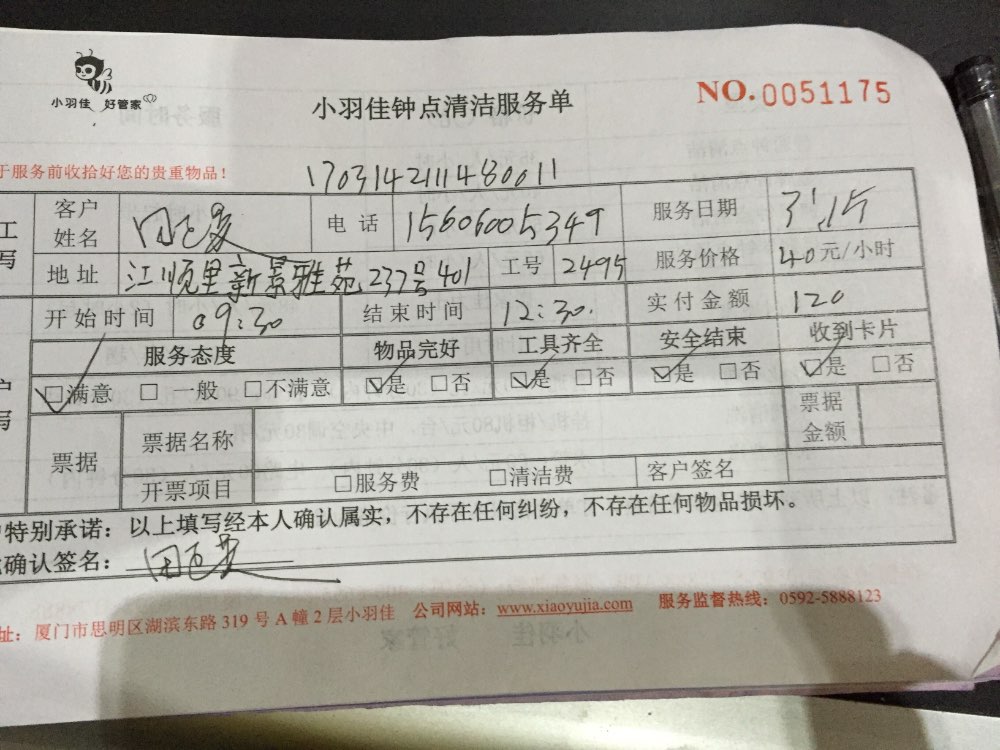 小羽佳 好管家
小羽佳钟点清洁服务单
NO.0051175
于服务前收拾好您的贵重物品！
1703142111480011
工
写
客户姓名 电话 15606005349 服务日期 3.15
地址 江顺里新景雅苑237号401 工号 2495 服务价格 40元/小时
开始时间 09:30 结束时间 12:30. 实付金额 120
服务态度 物品完好 工具齐全 安全结束 收到卡片
☑满意 □一般 □不满意 ☑是 □否 ☑是 □否 ☑是 □否 ☑是 □否
户
写
票据 票据名称 票据金额
开票项目 □服务费 □清洁费 客户签名
户特别承诺：以上填写经本人确认属实，不存在任何纠纷，不存在任何物品损坏。
确认签名：
址：厦门市思明区湖滨东路319号A幢2层小羽佳 公司网站：www.xiaoyujia.com 服务监督热线：0592-5888123